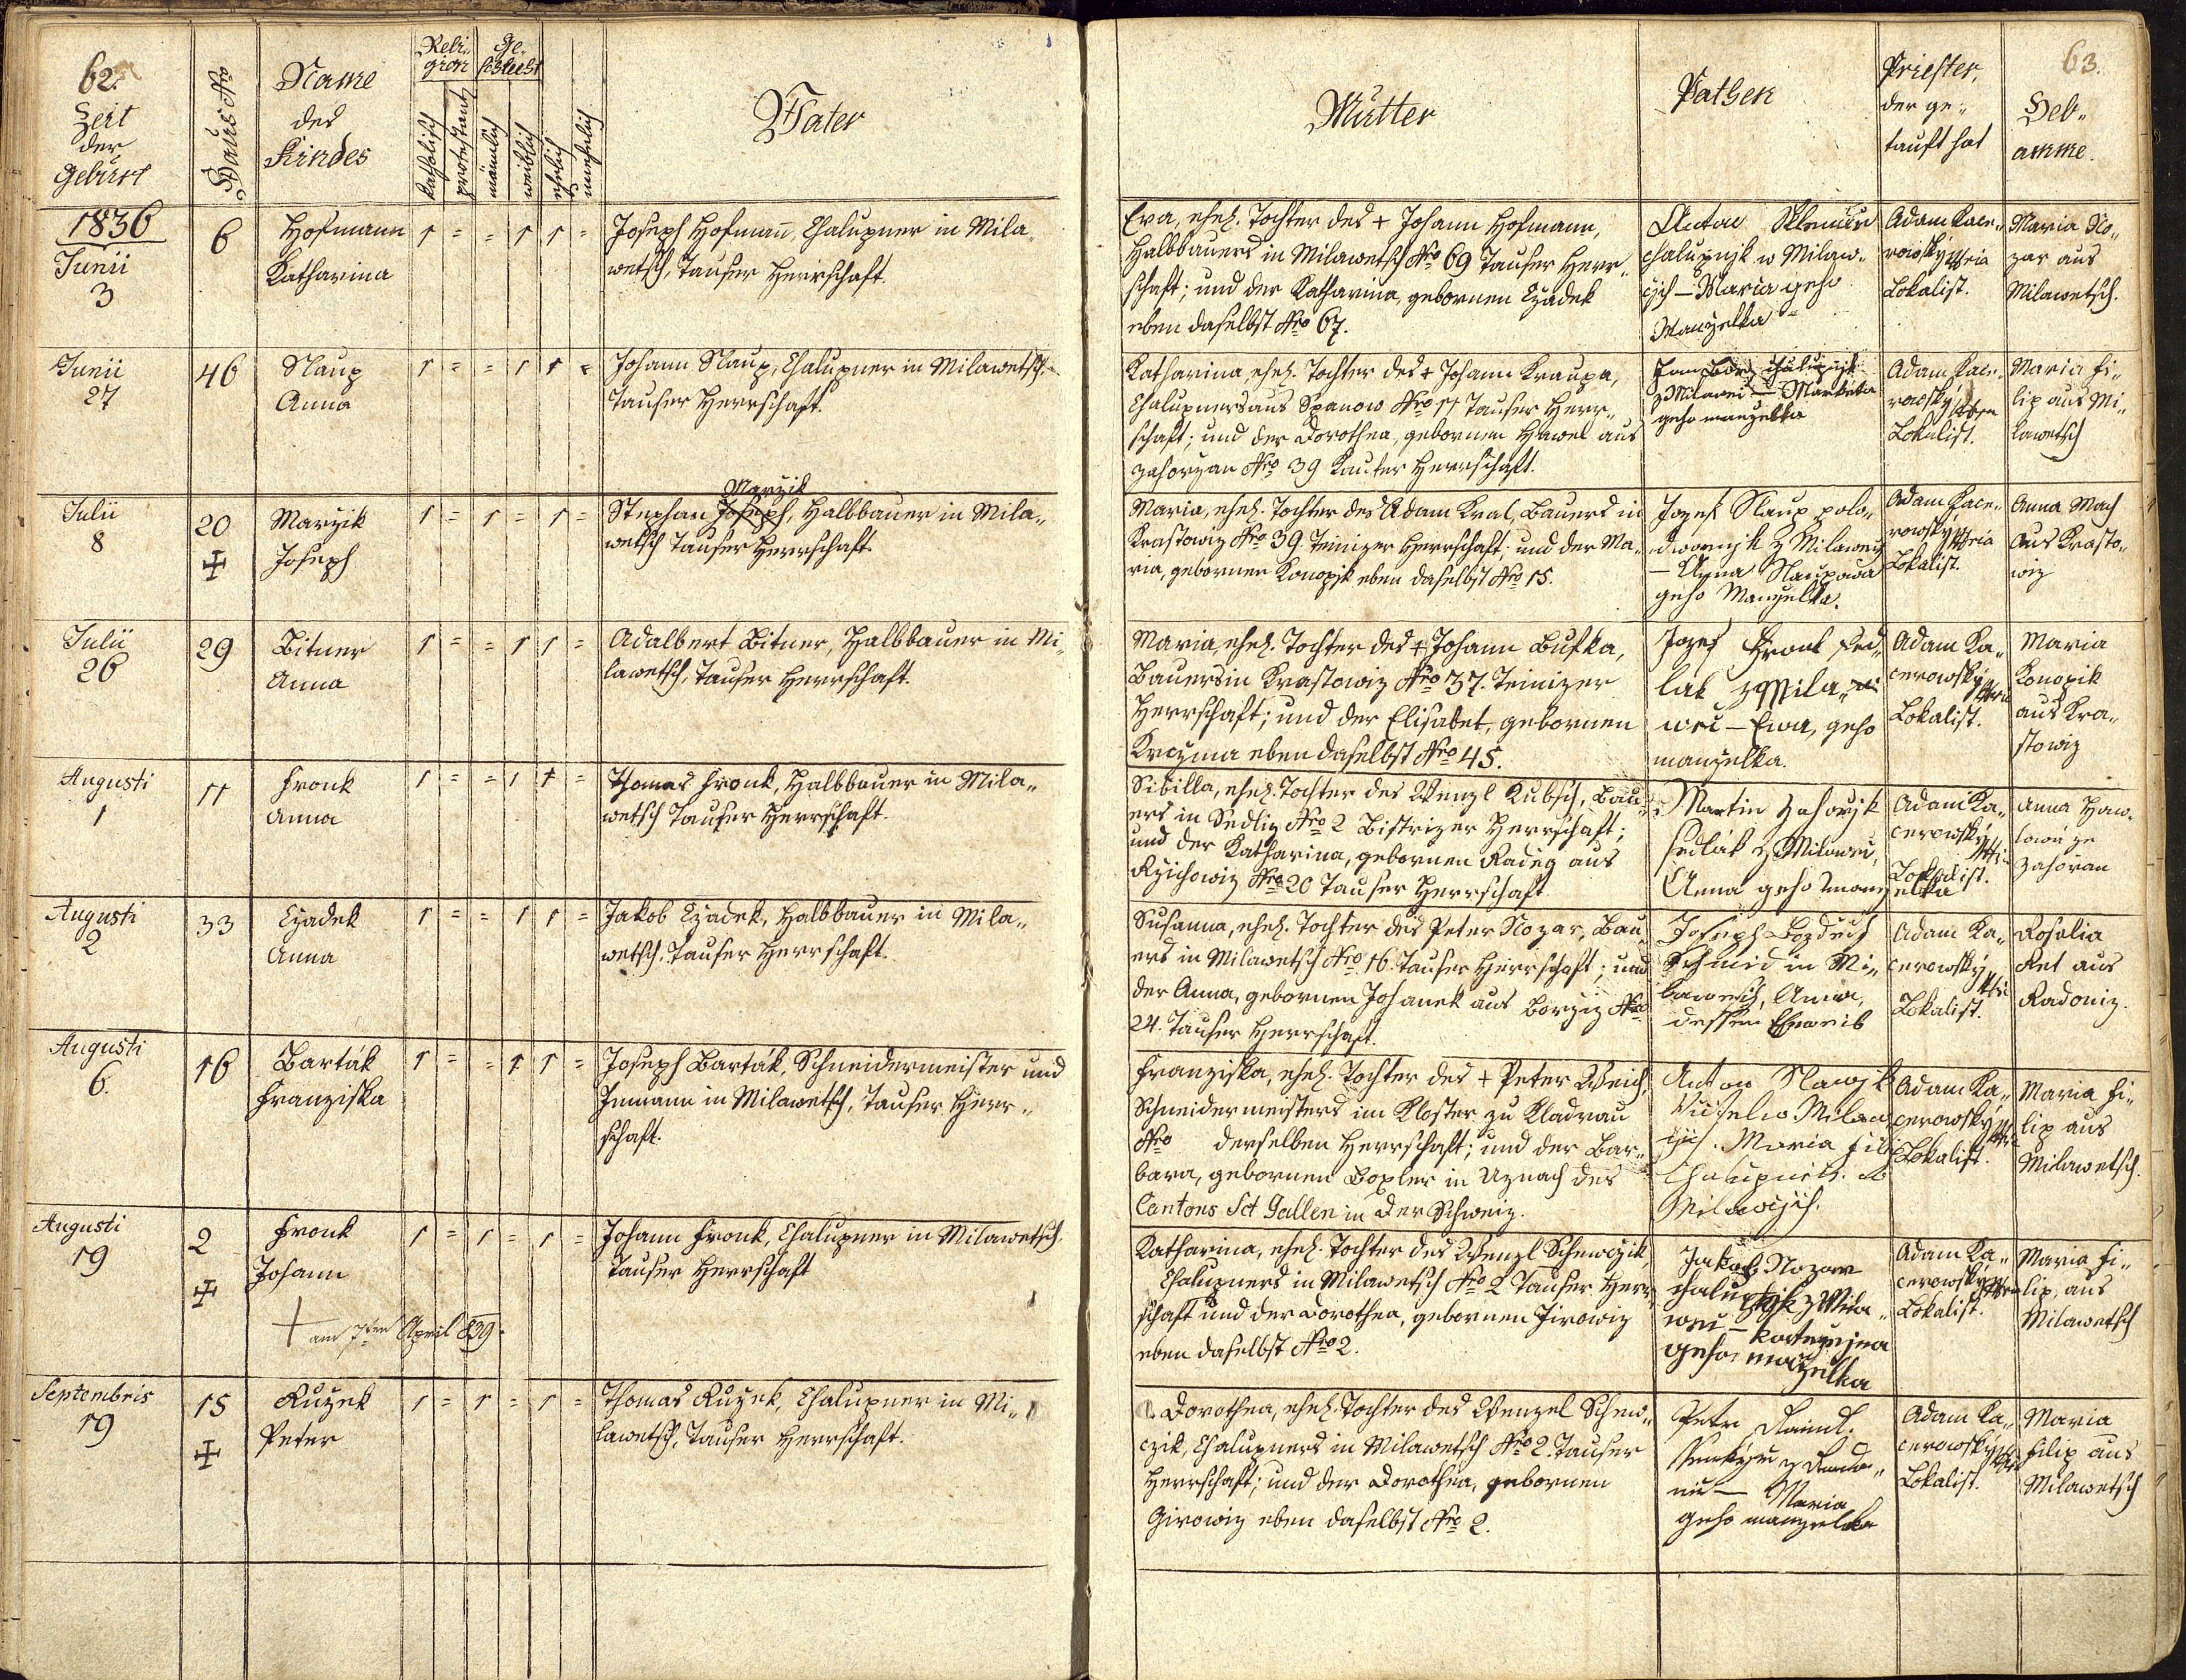 62.
Zeit
der
Geburt
Haus Nro
Name
des
Kindes
Reli-
gion
Ge-
schlecht
katholisch
protestant
männlich
weiblich
ehelich
unehelich
Vater
1836
Junii
3
6
Hofmann
Katharina
1 = = 1 1 =
Joseph Hofmann, Chalupner in Mila-
wetsch, Tauser Herrschaft.
Junii
27
46
Slaup
Anna
1 = = 1 1 =
Johann Slaup, Chalupner in Milawetsch
Tauser Herrschaft.
Julii
8
20
Marzik
Joseph
1 = 1 = 1 =
Marzik
Stephan Joseph, Halbbauer in Mila-
wetsch Tauser Herrschaft.
Julii
26
29
Bitner
Anna
1 = = 1 1 =
Adalbert Bitner, Halbbauer in Mi-
lawetsch, Tauser Herrschaft.
Augusti
1
11
Fronk
Anna
1 = = 1 1 =
Thomas Fronk, Halbbauer in Mila-
wetsch Tauser Herrschaft.
Augusti
2
33
Czadek
Anna
1 = = 1 1 =
Jakob Czadek, Halbbauer in Mila-
wetsch, Tauser Herrschaft.
Augusti
6.
16
Barták
Franziska
1 = = 1 1 =
Joseph Barták, Schneidermeister und
Inmann in Milawetsch, Tauser Herr-
schaft.
Augusti
19
2
Fronk
Johann
am 7ten April 839.
1 = 1 = 1 =
Johann Fronk, Chalupner in Milawetsch.
Tauser Herrschaft
Septembris
19
15
Ruzek
Peter
1 = 1 = 1 =
Thomas Ruzek, Chalupner in Mi-
lawetsch, Tauser Herrschaft.
63.
Mutter
Pathen
Priester,
der ge-
tauft hat
Heb-
amme.
Eva, ehel. Tochter des + Johann Hofmann,
Halbbauers in Milawetsch Nro 69 Tauser Herr-
schaft; und der Katharina, gebornen Czadek
eben daselbst Nro 67.
Anton
chalupnjk w Milaw-
cych – Maria geho
Manzelka
Adam Kace-
rowsky
Lokalist.
Maria No-
zar aus
Milawetsch.
Katharina, ehel. Tochter des + Johann Kraupa,
Chalupners aus Spanow Nro 11 Tauser Herr-
schaft; und der Dorothea, gebornen Hawel aus
Zahorzan Nro 39 Kauter Herrschaft.
Jan chalupnjk
z Milawci – Marketa
geho manzelka
Adam Kace-
rowsky
Lokalist.
Maria Fi-
lip aus Mi-
lawetsch
Maria, ehel. Tochter des Adam Kral, Bauers in
Krastowiz Nro 39. Teinizer Herrschaft; und der Ma-
ria, gebornen Konopjk eben daselbst Nro 15.
Jozef Slaup polo-
dwornjk z Milawez
– Anna Slaupowa
geho Manzelka.
Adam Kace-
rowsky
Lokalist.
Anna Mach
aus Krasto-
wiz
Maria, ehel. Tochter des + Johann Bufka,
Bauers in Krastowiz Nro 37. Teinizer
Herrschaft; und der Elisabet, gebornen
Kreyma eben daselbst Nro 45.
Jozef Fronk sed-
lak z Mila-
wci – Ewa, geho
manzelka.
Adam Ka-
cerowsky
Lokalist.
Maria
Konopik
aus Kra-
stowiz
Sibilla, ehel. Tochter des Wenzl Kubsch, Bau-
ers in Sedliz Nro 2 Bistrizer Herrschaft;
und der Katharina, gebornen Radig aus
Rzichowiz Nro 20 Tauser Herrschaft
Martin Zahorjk
sedlák z Milawci,
Anna geho manzelka
Adam Ka-
cerowsky
Lokalist.
Anna Haw-
lowá ze
Zahoran
Susanna, ehel. Tochter des Peter Nozar, Bau-
ers in Milawetsch Nro 16. Tauser Herrschaft; und
der Anna, gebornen Johanek aus Borziz Nro
24. Tauser Herrschaft.
Joseph Bozdech
Schmid in Mi-
lawetsch, Anna,
dessen Eheweib
Adam Ka-
cerowsky
Lokalist.
Rosalia
Ret aus
Radoniz.
Franziska, ehel. Tochter des + Peter Weich,
Schneidermeisters im Kloster zu Kladrau
Nro derselben Herrschaft; und der Bar-
bara, gebornen Boxler in Uznach des
Cantons Sct Gallen in der Schweiz.
Anton Slawjk
Milaw-
cych. Maria Fili
w
Milawcych.
Adam Ka-
cerowsky
Lokalist.
Maria Fi-
lip aus
Milawetsch.
Katharina, ehel. Tochter des Wenzl Schewczik,
Chalupners in Milawetsch Nro 2 Tauser Herr-
schaft und der Dorothea, gebornen Jirowiz
eben daselbst Nro 2.
Jakob Nozar
chalupnjk z Mila-
wci – Katerzjna
geho manzelka
Adam Ka-
cerowsky
Lokalist.
Maria Fi-
lip, aus
Milawetsch
Dorothea, ehel. Tochter des Wenzel Schew-
czik, Chalupners in Milawetsch Nro 2. Tauser
Herrschaft; und der Dorothea, gebornen
Girowiz eben daselbst Nro 2.
Petr
Maria
geho manzelka
Adam Ka-
cerowsky
Lokalist.
Maria
Filip aus
Milawetsch